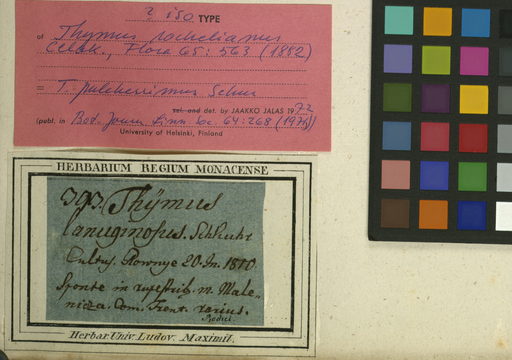 ? iso TYPE
of Thymus rochelianus
Čelak., Flora 65: 563 (1882)
= T. pulcherrimus Schur
sel. and det. by JAAKKO JALAS 1972
(publ. in Bot. Journ. Linn. Soc. 64:268 (1971))
University of Helsinki, Finland
HERBARIUM REGIUM MONACENSE
393. Thÿmus
lanuginosus. Schkuhr
Cultus. Rownye 20. Jn. 1810
Sponte in rupestrib. m. Male-
nicza. Com. Trent. rarius.
Rochel.
Herbar. Univ. Ludov. Maximil.